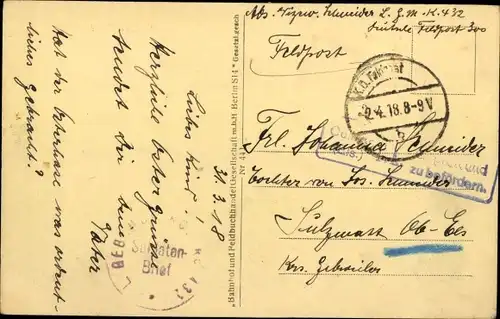 31. 3. 18
Liebes Kind!
Herzliche Ostergrüsse
sendet dir dein
Vater
Hat der Osterhase was ordent-
liches gebracht?
Soldaten-
Brief
"Bahnhof und Feldbuchhandel Gesellschaft m.b.H. Berlin S14" Gesetzl. gesch.
Nr 4
Abs. Vizew. Schneider L. G. M. K. 432
Feldpost 300
Feldpost
K.D. Feldpost
2.4.18. 8-9V
b
Frl. Johanna Schneider
zu befördern.
Tochter von Jos. Schneider
Sulzmatt Ob-Els
Krs. Gebweiler